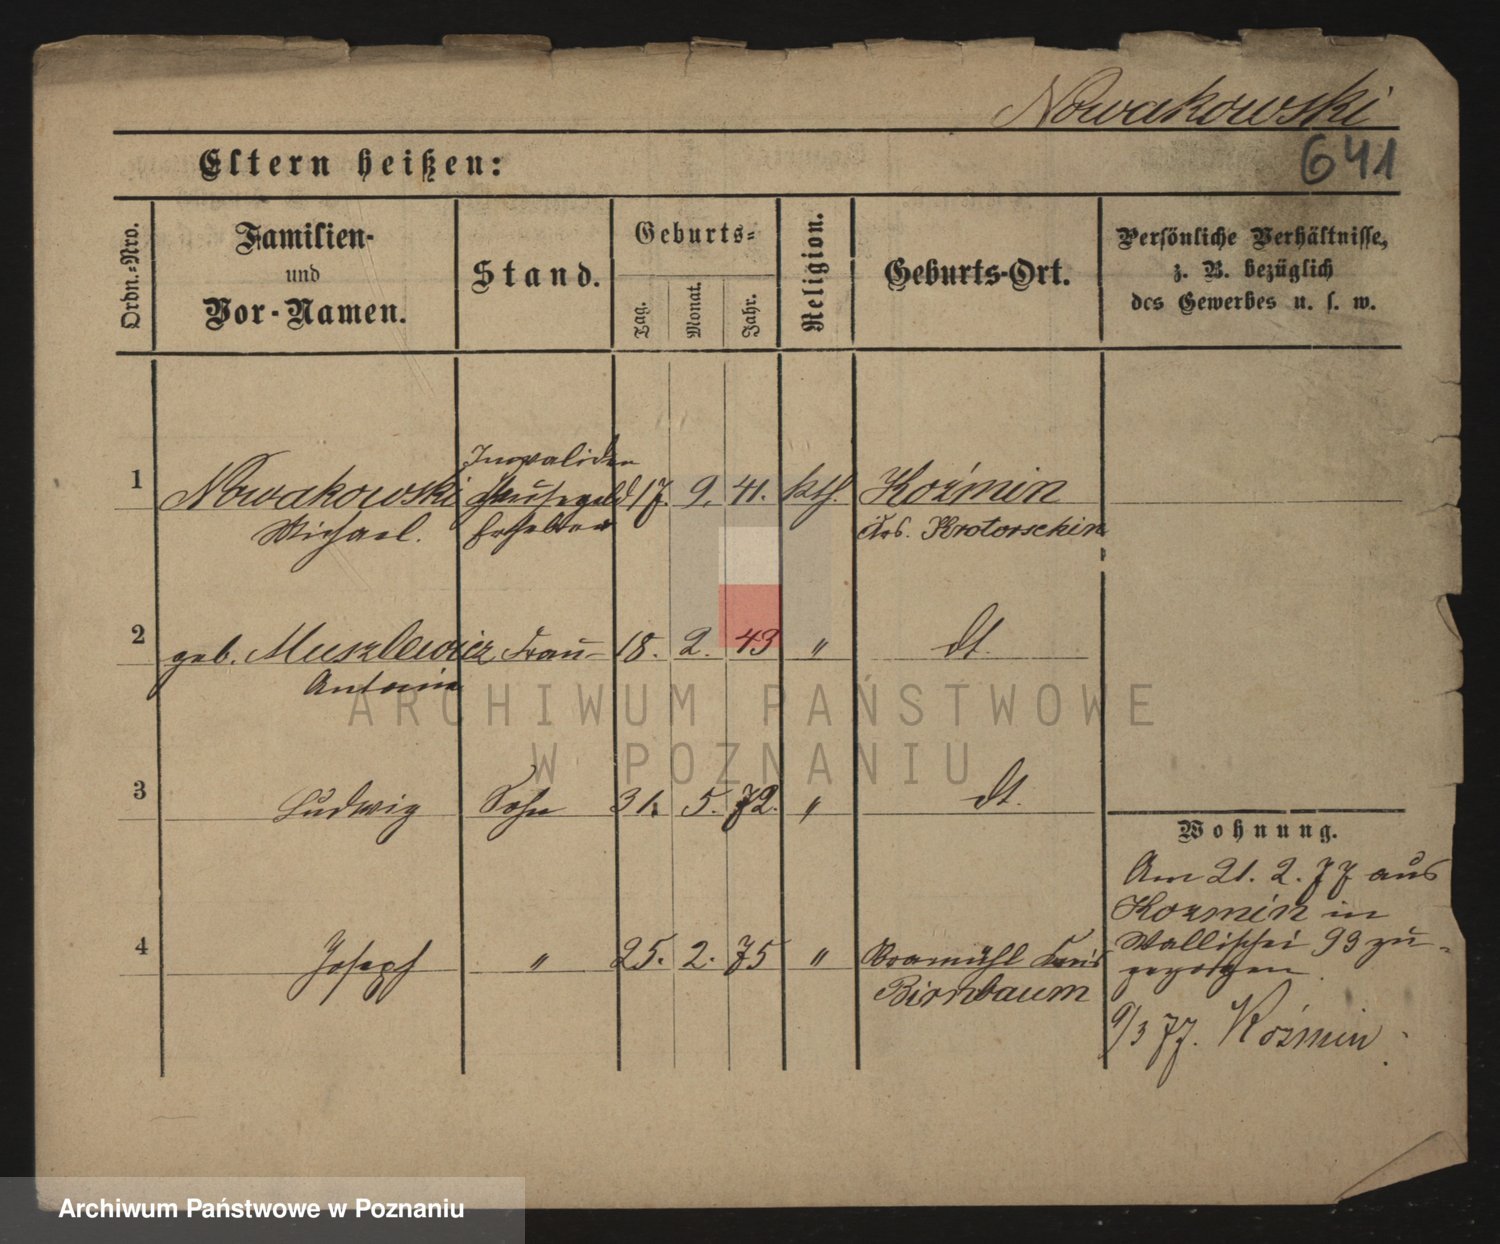 Nowakowski
641
Eltern heißen:
Ordn.-Nro.
Familien-
und
Vor-Namen.
Stand.
Geburts-
Tag.
Monat.
Jahr.
Religion.
Geburts-Ort.
Persönliche Verhältnisse,
z. B. bezüglich
des Gewerbes u. s. w.
Invaliden
1 Nowakowski 17. 9. 41. kth. Koźmin
Michael. Krs. Krotoschin
2 geb. Muszlewicz Frau 18. 2. 43 " dt.
Antonie
3 Ludwig Sohn 31. 5. 72. " dt.
4 Joseph " 25. 2. 75 " Kreis
Birnbaum
Wohnung.
Am 21. 2. 77 aus
Kozmin in
Wallischei 99 zu-
gezogen.
9/3 77. Koźmin
ARCHIWUM PAŃSTWOWE
W POZNANIU
Archiwum Państwowe w Poznaniu